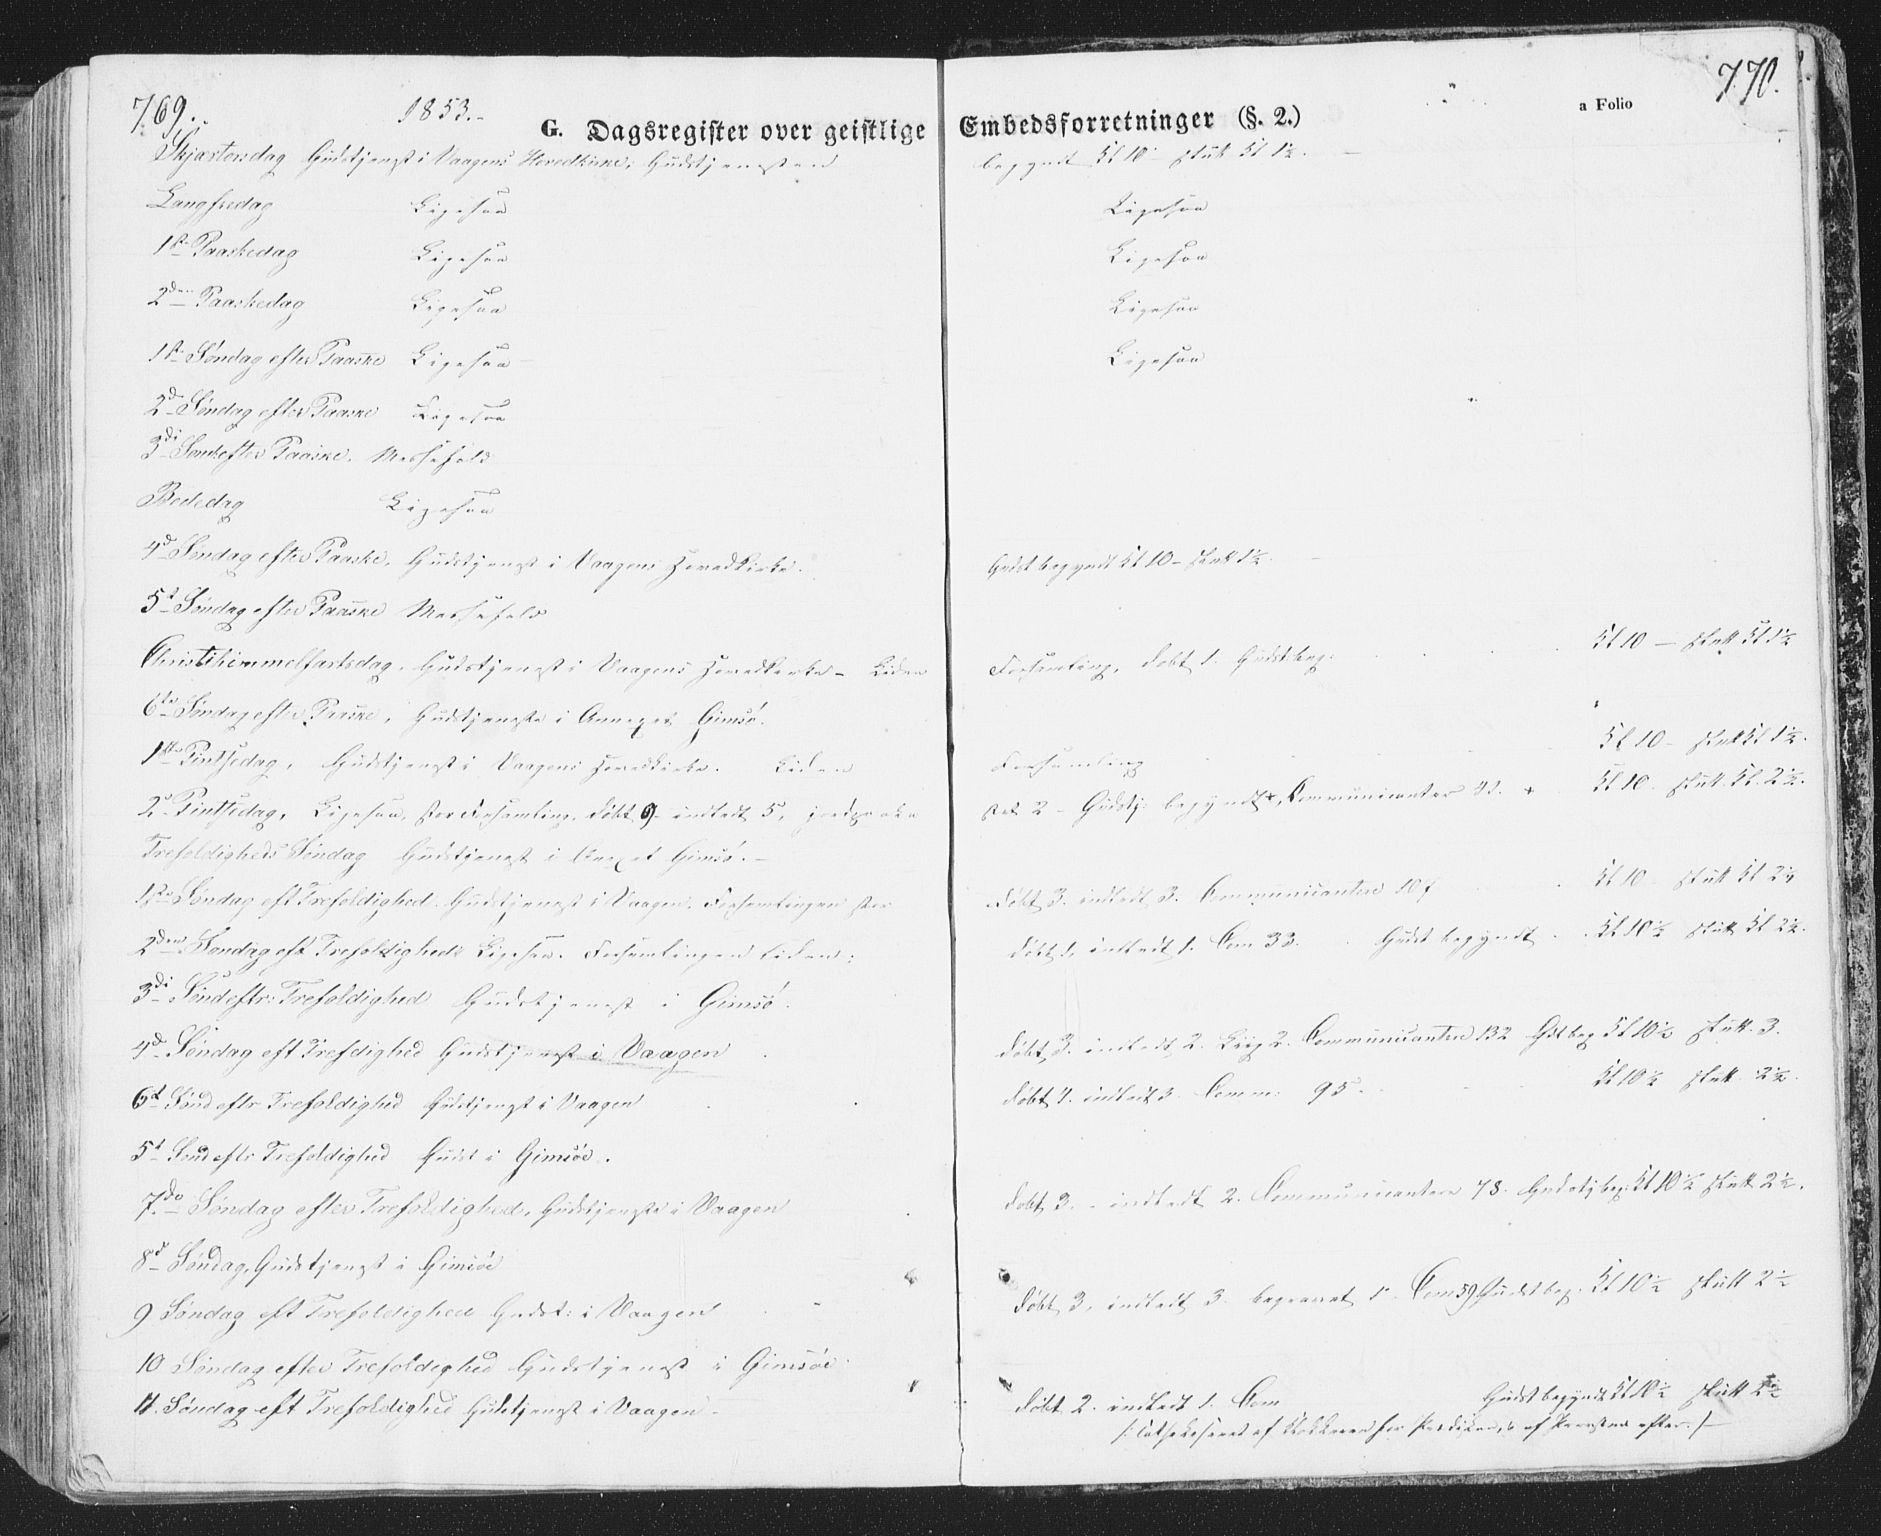 769. 1853.- 770.
G. Dagsregister over geistlige Embedsforretninger (§. 2.) a Folio
Skjærtorsdag Gudstjenest i Vaagens Hovedkirke; Gudstjenesten begyndt Kl 10 - slutt Kl 1½.
Langfredag Ligesaa Ligesaa
1ste Paaskedag Ligesaa Ligesaa
2den Paaskedag Ligesaa Ligesaa
1ste Søndag efter Paaske Ligesaa Ligesaa
2d Søndag efter Paaske Ligesaa
3di Sønd efter Paaske. Messefald
Bededag Ligesaa
4d Søndag efter Paaske, Gudstjenest i Vaagens Hovedkirke. Gudst begyndt Kl 10 - slutt 1½.
5t Søndag efter Paaske Messefald
Christihimmelfartsdag. Gudstjenest i Vaagens Hovedkirke - Liden Forsamling, døbt 1. Gudst beg: Kl 10 - slutt Kl 1½
6te Søndag efter Paaske, Gudstjeneste i Annexet Gimsø.
1ste Pintsedag, Gudstjenest i Vaagens Hovedkirke. Liden Forsamling Kl 10 - slutt Kl 1½.
2d Pintsedag, Ligesaa, stor Forsamling. døbt 9 - indledt 5, jordpaaka stet 2 - Gudstj: begyndt, Communicanter Kl 10. slutt. Kl. 2½.
Trefoldigheds Søndag Gudstjenest i Annexet Gimsø. -
1ste Søndag eft Trefoldighed. Gudstjenest i Vaagen. Forsamlingen stor døbt 3. indledt 3. Communicantere 107 Kl 10 - slutt Kl
2den Søndag eft Trefoldigheds Ligesaa. Forsamlingen liden; døbt 1, indledt 1. Com 33. Gudst begyndt Kl 10½ slutt Kl 2½.
3di Sønd eftr: Trefoldighed Gudstjenest i Gimsø.
4d Søndag eft Trefdighed Gudstjenest i Vaagen døbt 3. indledt 2. 2. Communicantere 132 Gdst beg Kl 10½ slutt. 3.
6t Sønd eftr Trefoldighed Gudstjenest i Vaagen døbt indledt 3. Comm: 95. Kl 10½ slutt 2½.
5t Sønd eftr Trefoldighed Gudst i Gimsøe.
7de Søndag efter Trefoldighed, Gudstjeneste i Vaagen døbt 3. - indledt 2. Communicantere 78. Gudstj beg: Kl 10½ slutt 2½.
8d Søndag, Gudstjenest i Gimsøe
9 Søndag eft Trefoldighed Gudst: i Vaagen døbt 3, indledt 3. begravet 1. Com 59 Gudst beg. Kl 10½ slutt 2½
10 Søndag efter Trefoldighed Gudstjenest i Gimsøe.
11. Søndag eft Trefoldighed Gudstjenest i Vaagen - døbt 2. indledt 1. Com Gudst begyndt Kl 10½ slutt 2½
/: Cathekiseret af Klokkeren før Prædiken, & af Præsten efter. /-